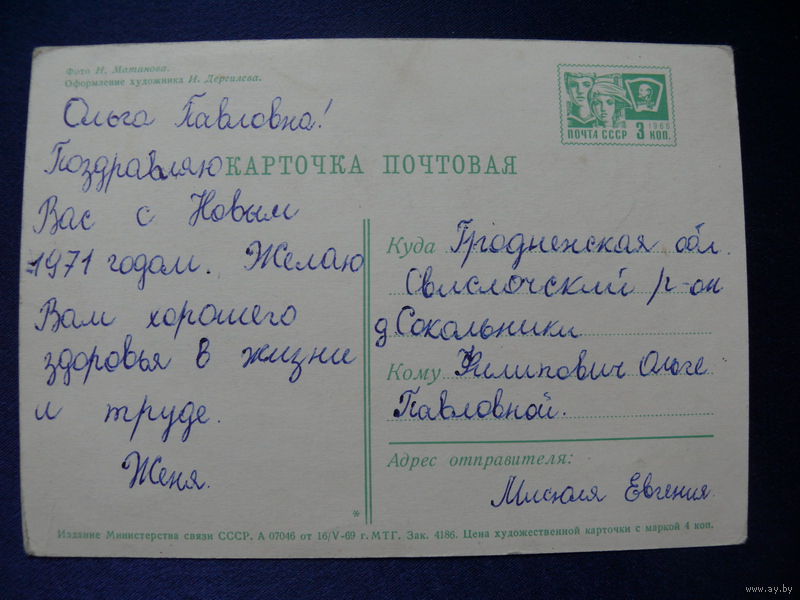 Фото Н. Матанова.
Оформление художника И. Дергилева.
ПОЧТА СССР 3 КОП.
1966
Ольга Павловна!
Поздравляю
КАРТОЧКА ПОЧТОВАЯ
Вас с Новым
1971 годом. Желаю
Вам хорошего
здоровья в жизни
и труде.
Женя.
Куда Гродненская обл.
Свислочский р-он
д Сокольники
Кому Филипович Ольге
Павловной.
Адрес отправителя:
Мисюля Евгения.
*
Издание Министерства связи СССР. А 07046 от 16/V-69 г. МТГ. Зак. 4186. Цена художественной карточки с маркой 4 коп.
www.ay.by